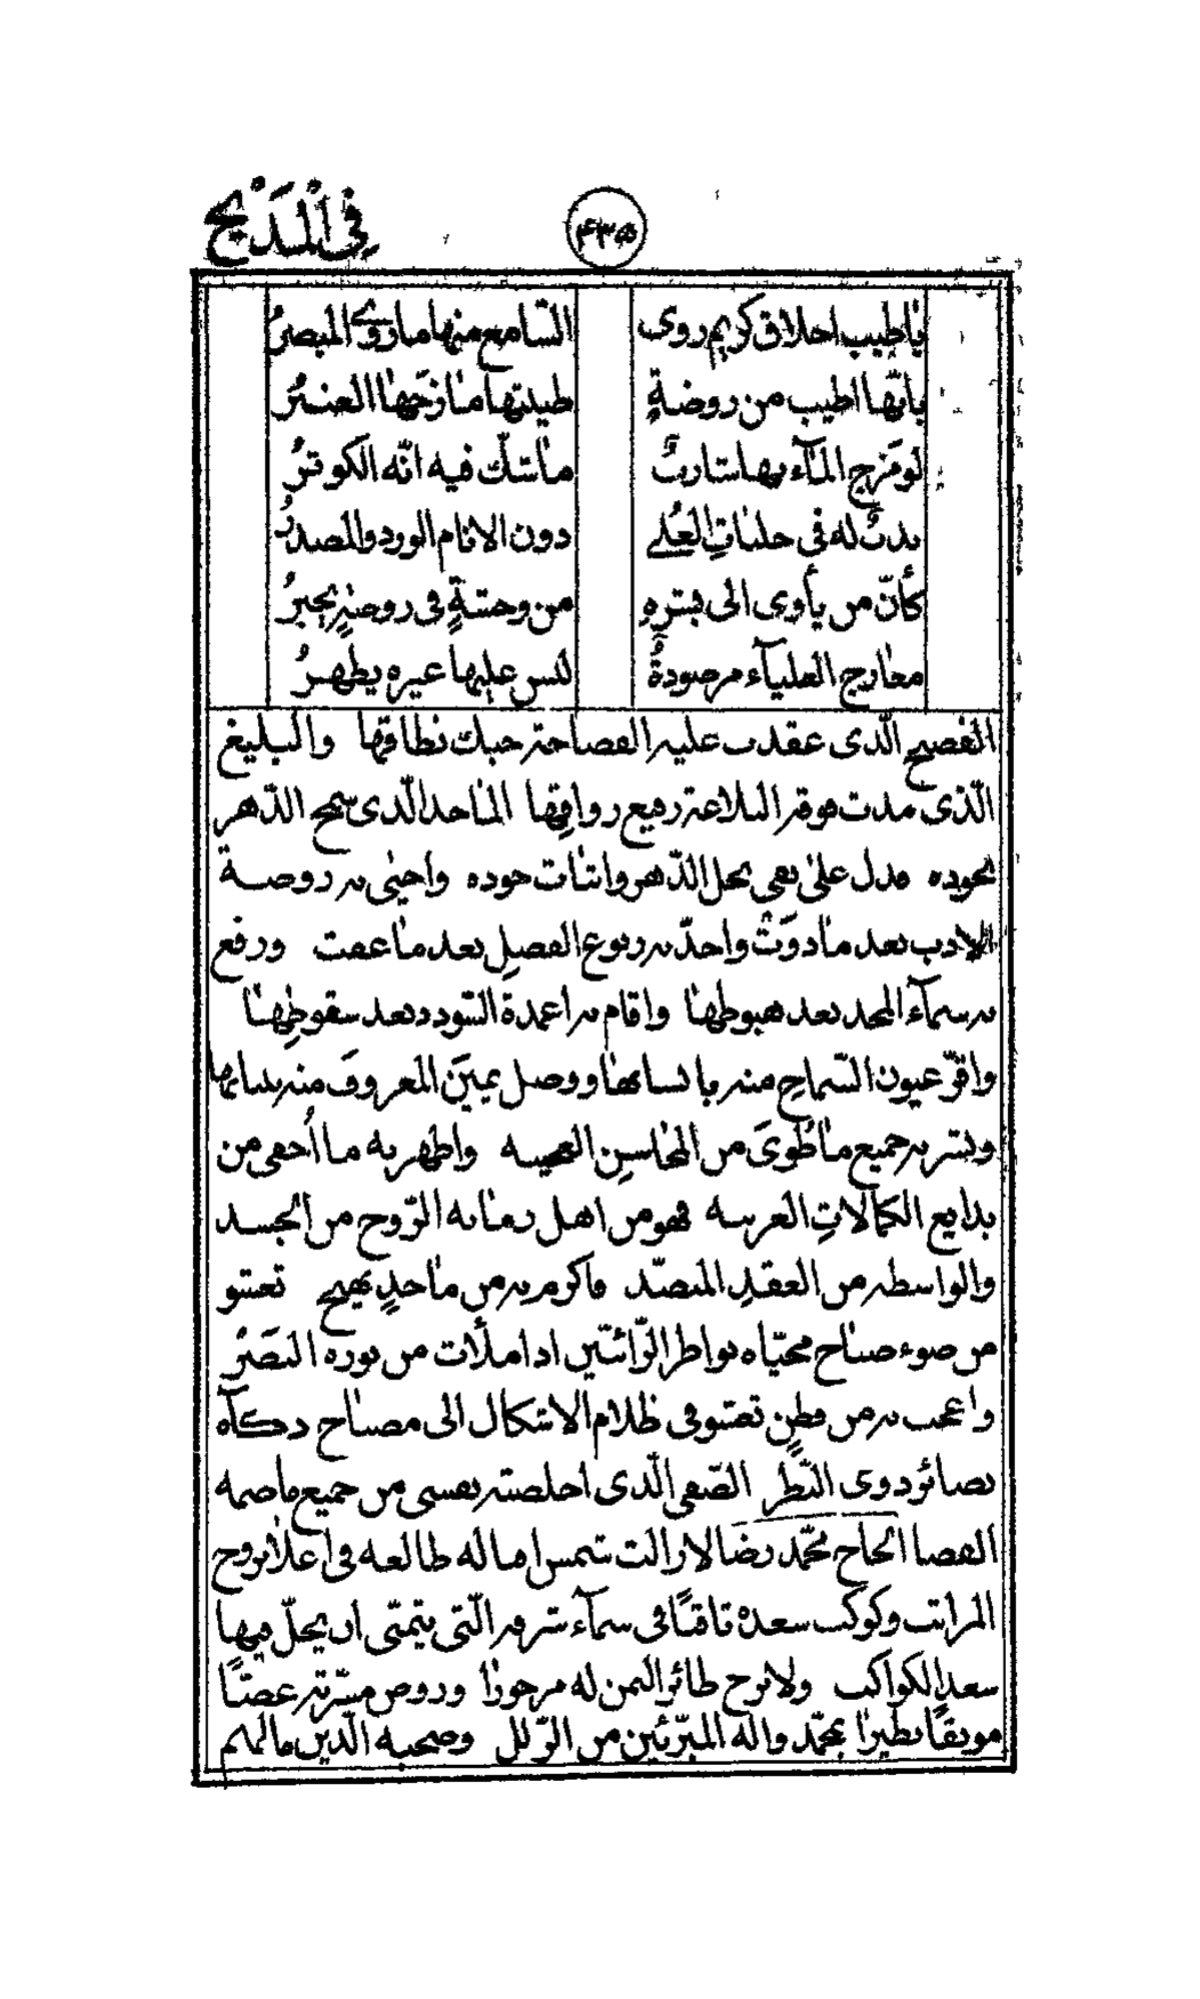 في المديح
٤٣٥
يا طيب اخلاق كريم روى
السامع منها ما روى المبصرُ
بانّها اطيب من روضةٍ
طينتها مازجها العنبرُ
لو مزج الماء بها شاربٌ
ما شكّ فيه انّه الكوثرُ
بدتْ له في حلبات العُلى
دون الانام الورد والمصدرُ
كأنّ من يأوى الى بشرهِ
من وجنةٍ في روضةٍ يحبرُ
معارج العلياء مرصودةٌ
ليس عليها غيره يظهرُ
الفصيح الّذى عقدت عليه الفصاحة حبك نطاقها والبليغ
الّذى مدت فوقه البلاغة رفيع رواقها الماجد الّذى سمح الدّهر
بجوده فدل على نفي بخل الدّهر واثبات جوده واحيى به روضة
الادب بعد ما ذوتْ واجدّ به ربوع الفضل بعد ما عفت ورفع
به سماء المجد بعد هبوطها واقام به اعمدة السّودد بعد سقوطها
واقرّ عيون السّماح منه بانسانها ووصل يمين المعروف منه ببنانها
ونشر به جميع ما طُوىَ من المحاسن العجيبه واظهر به ما اُخفى من
بدايع الكمالاتِ الغريبه فهو من اهل زمانه الرّوح من الجسد
والواسطه من العقدِ المنضّد فاكرم به من ماجدٍ بهيج تعشو
من ضوء صباح محيّاه نواظر الرّائين اذا ملأت من نوره البَصَرْ
واعجب به من فطنٍ تعشو في ظلام الاشكال الى مصباح ذكآه
بصائر ذوى النّظر الصّفي الّذى اخلصته نفسى من جميع
الحاج محمّد رضا لازالت شمس اقباله طالعه في اعلا بروج
المراتب وكوكب سعده ثاقباً في سماء شرفه الّتى يتمنّى ان يحلّ فيها
سعد الكواكب ولا برح طائر اليمن له مزجورًا وروض مسرّته غضّاً
مونقاً نظيرا بمحمّد واله المبرّئين من الزّلل وصحبه الّذين